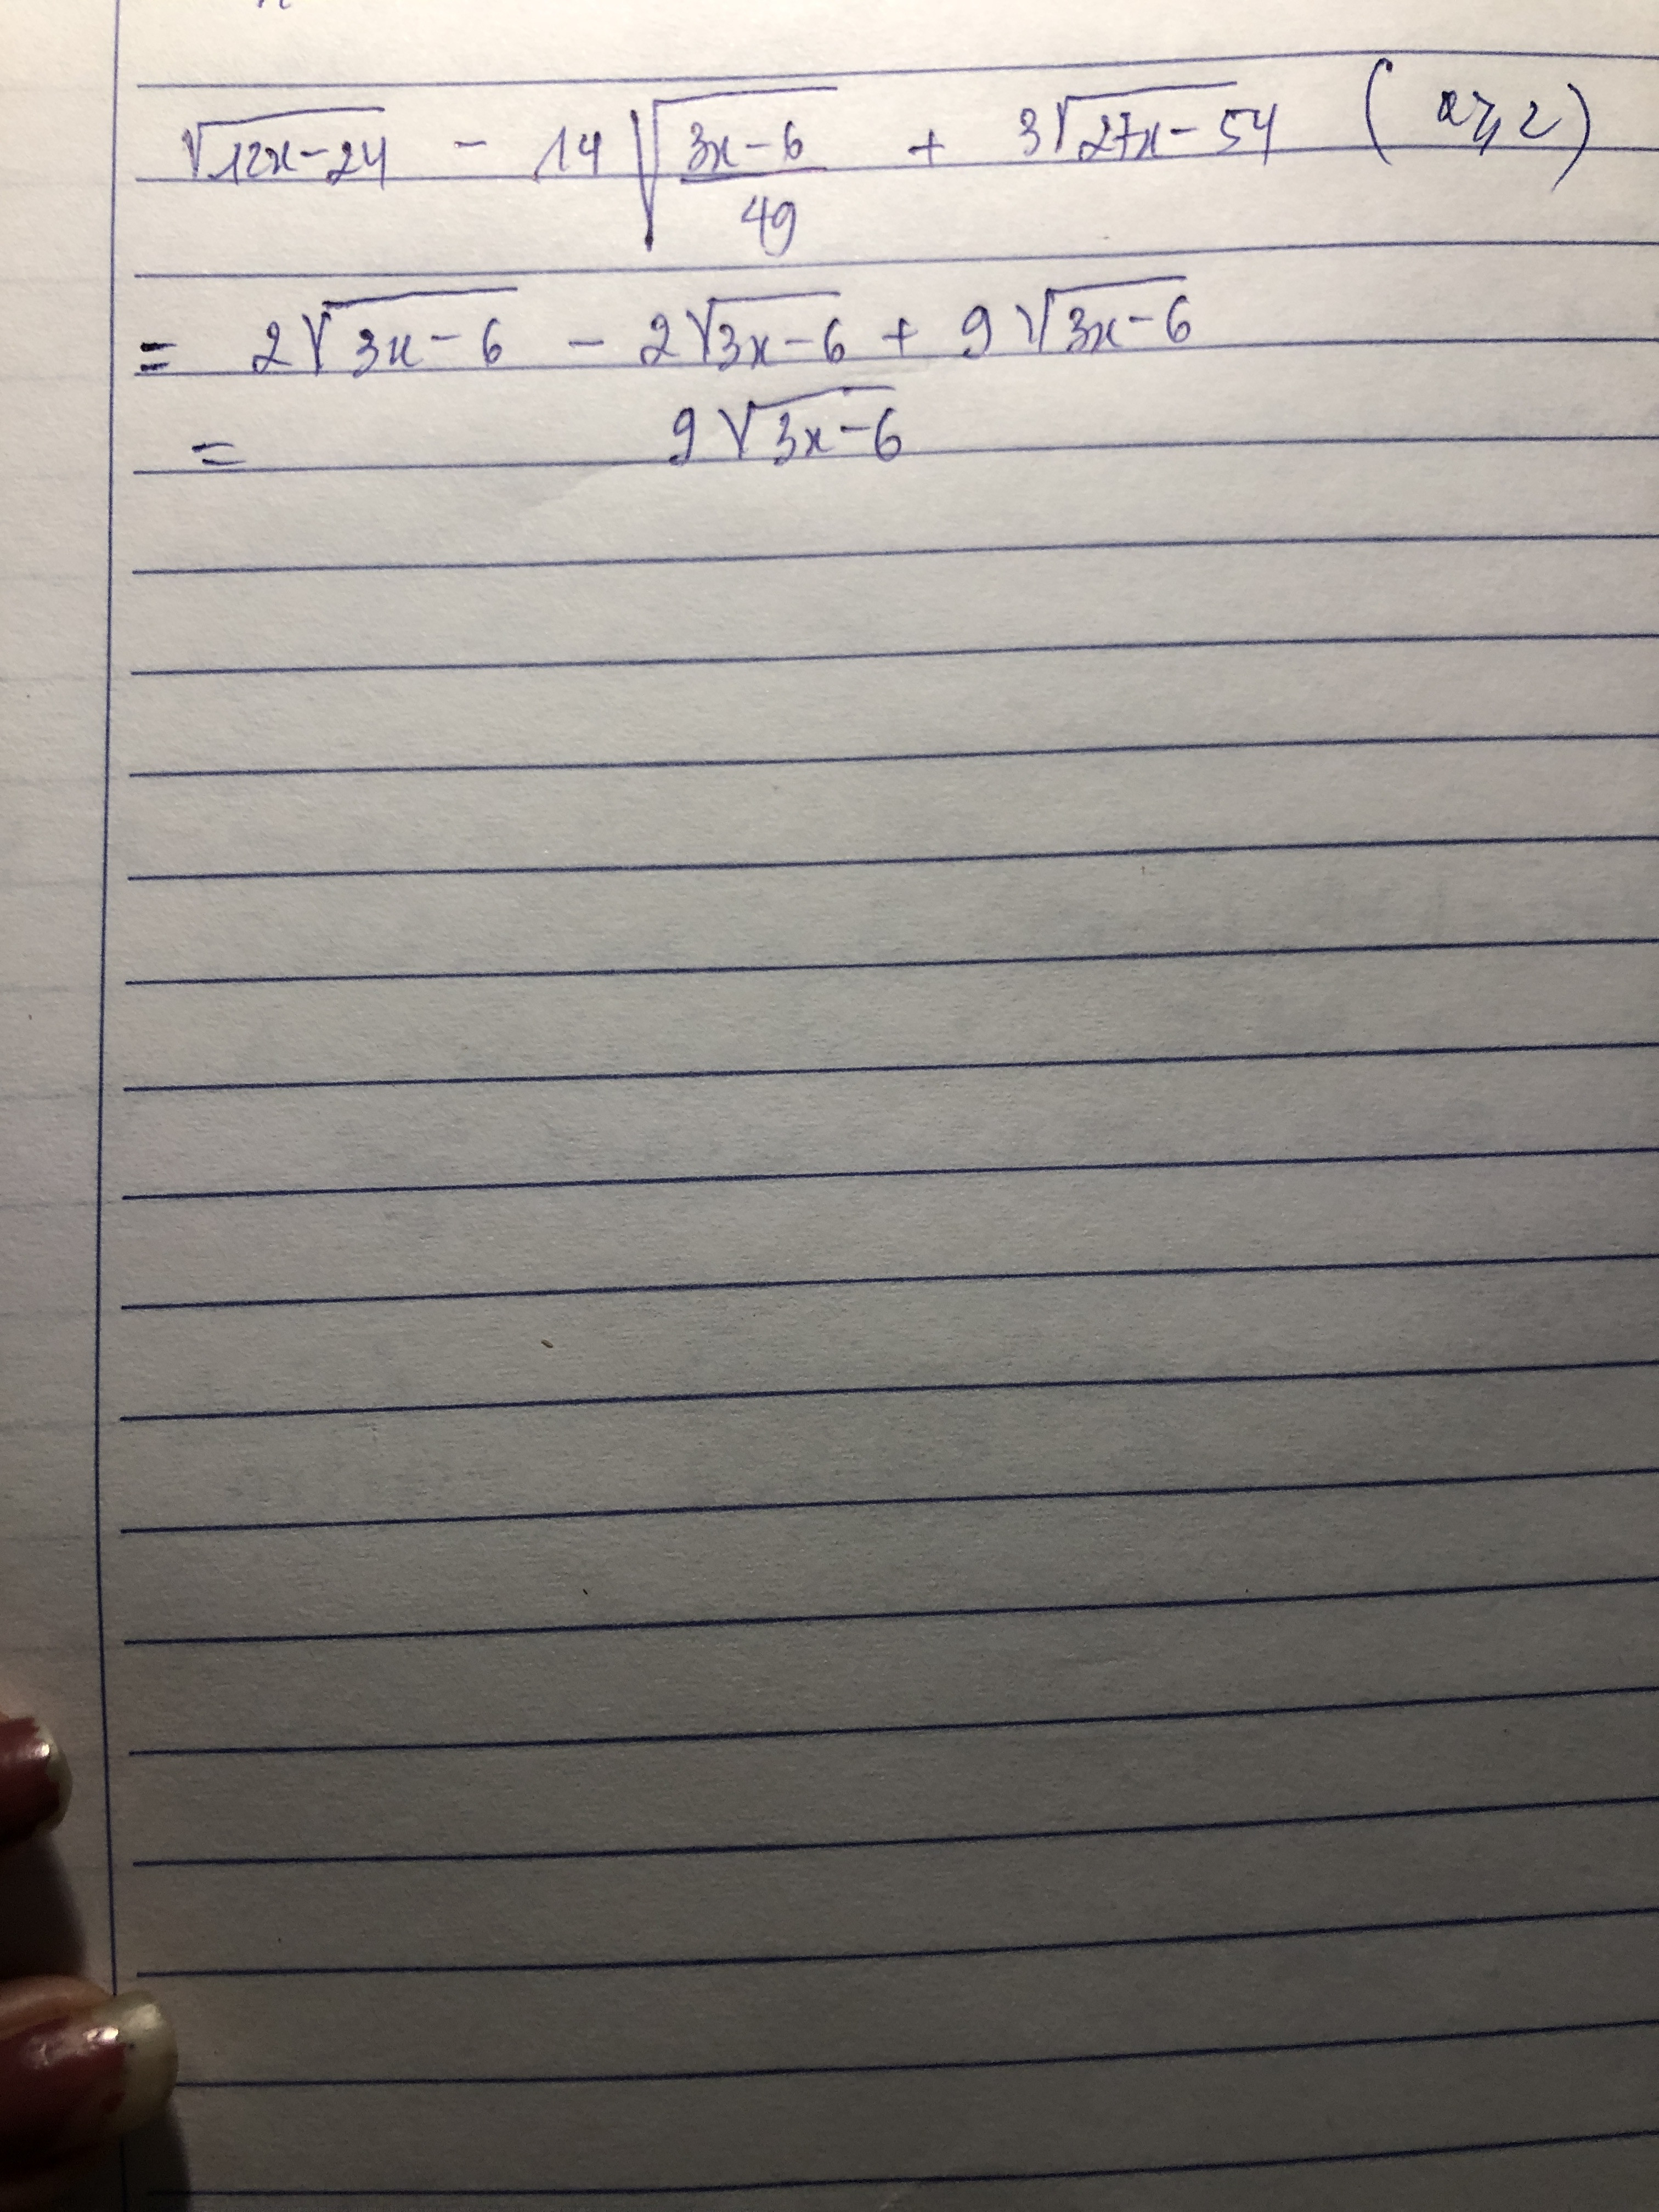 √(12x-24) - 14√((3x-6)/49) + 3√(27x-54) (x ⩾ 2)
= 2√(3x-6) - 2√(3x-6) + 9√(3x-6)
= 9√(3x-6)